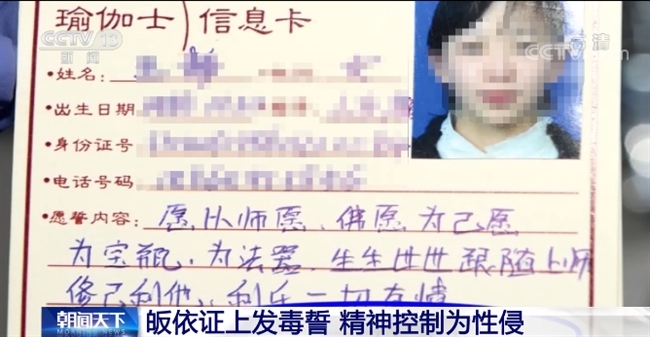 CCTV 13
新闻
高清
CCTV.com
瑜伽士）信息卡
•姓名:
•出生日期
•身份证号
•电话号码
•愿誓内容: 愿从师愿、佛愿为己愿
为宝瓶、为法器、生生世世跟随上师
修己利他、利乐一切有情
朝闻天下
MORNING NEWS
皈依证上发毒誓 精神控制为性侵